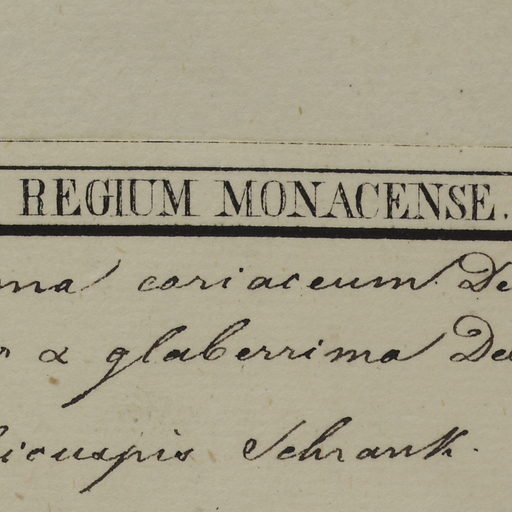 REGIUM MONACENSE.
ma coriaceum De
r α glaberrima De
icuspis Schrank.